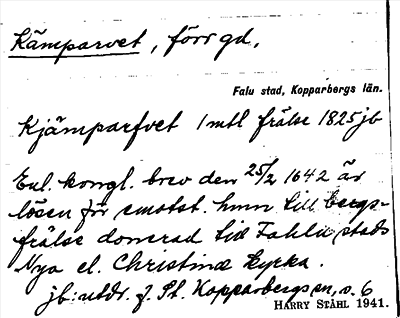 Kämparvet, förr gd.
Falu stad, Kopparbergs län.
Kjämparfvet 1 mtl frälse 1825 jb
Enl. kongl. brev den 25/2 1642 är
lösen för emotst. hmn till bergs-
frälse donerad tid Fahlu stads
Nya el. Christinæ kyrka.
jb: utdr. f. St. Kopparbergs sn, s. 6
HARRY STÅHL 1941.